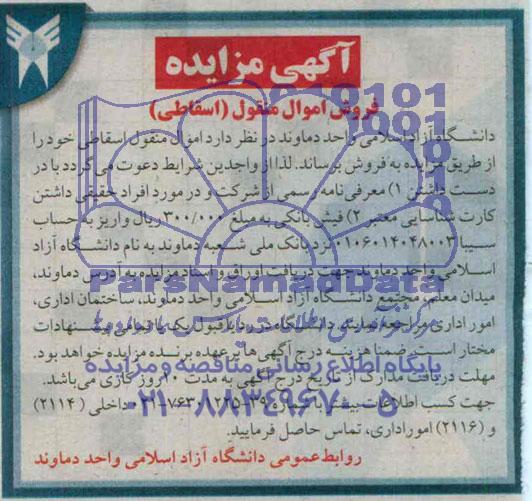 آگهی مزایده
فروش اموال منقول (اسقاطی)
دانشگاه آزاد اسلامی واحد دماوند در نظر دارد اموال منقول اسقاطی خود را
از طریق مزایده به فروش برساند. لذا از واجدین شرایط دعوت می گردد با در
دست داشتن ۱) معرفی نامه رسمی از شرکت و در مورد افراد حقیقی داشتن
کارت شناسایی معتبر ۲) فیش بانکی به مبلغ ۳۰۰/۰۰۰ ریال واریز به حساب
سیبا ۰۱۰۶۰۱۴۰۴۸۰۰۳ نزد بانک ملی شعبه دماوند به نام دانشگاه آزاد
اسلامی واحد دماوند جهت دریافت اوراق و اسناد مزایده به آدرس دماوند،
میدان معلم، مجتمع دانشگاه آزاد اسلامی واحد دماوند، ساختمان اداری،
امور اداری مراجعه نمایند. دانشگاه در رد یا قبول یک یا تمامی پیشنهادات
مختار است. ضمنا هزینه درج آگهی ها بر عهده برنده مزایده خواهد بود.
مهلت دریافت مدارک از تاریخ درج آگهی به مدت ۱۰ روز کاری می باشد.
جهت کسب اطلاعات بیشتر با داخلی (۲۱۱۴)
و (۲۱۱۶) امور اداری، تماس حاصل فرمایید.
روابط عمومی دانشگاه آزاد اسلامی واحد دماوند
ParsNamadData
پایگاه اطلاع رسانی مناقصه و مزایده
۰۲۱-۸۸۳۴۹۶۷۰-۵